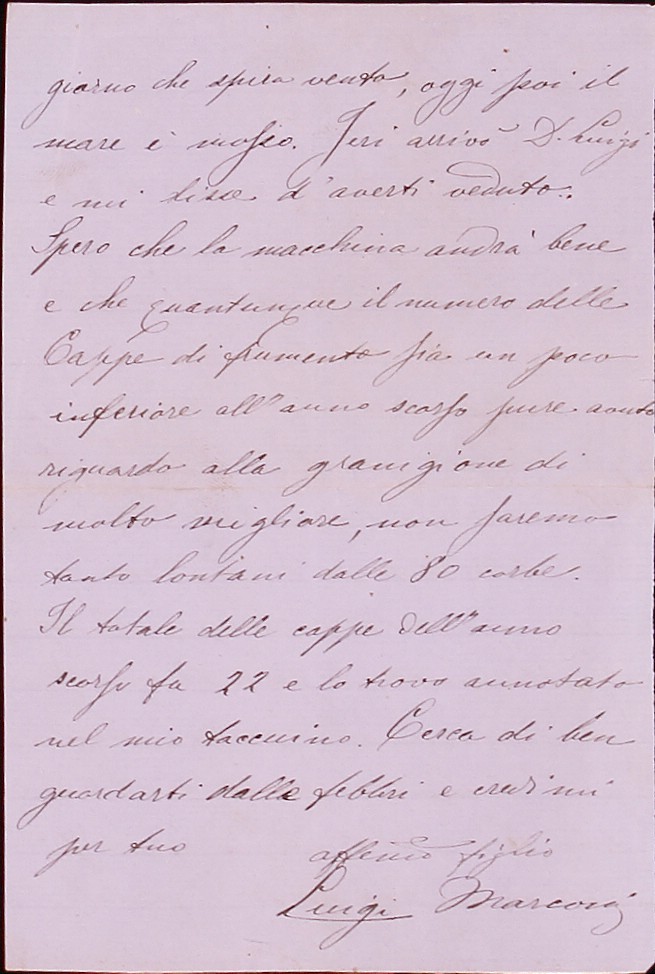 giorno che spira vento, oggi poi il
mare è mosso. Ieri arrivò D. Luigi
e mi disse d'averti veduto.
Spero che la macchina andrà bene
e che quantunque il numero delle
Cappe di frumento sia un poco
inferiore all'anno scorso pure avuto
riguardo alla granigione di
molto migliore, non saremo
tanto lontani dalle 80 corbe.
Il totale delle cappe dell'anno
scorso fu 22 e lo trovo annotato
nel mio taccuino. Cerca di ben
guardarti dalle febbri e credimi
per tuo affemo figlio
Luigi Marconi